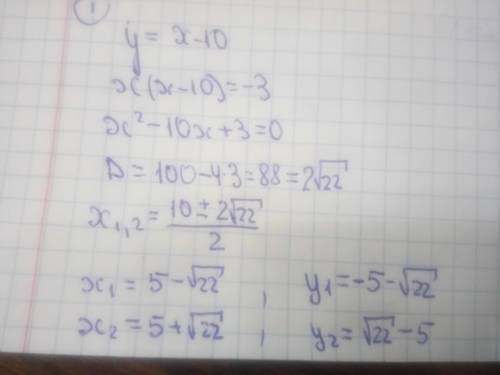 1
y = x-10
x(x-10)=-3
x²-10x+3=0
D=100-4·3=88=2√22
x₁,₂ = (10±2√22)/2
x₁ = 5-√22, y₁=-5-√22
x₂ = 5+√22, y₂=√22-5